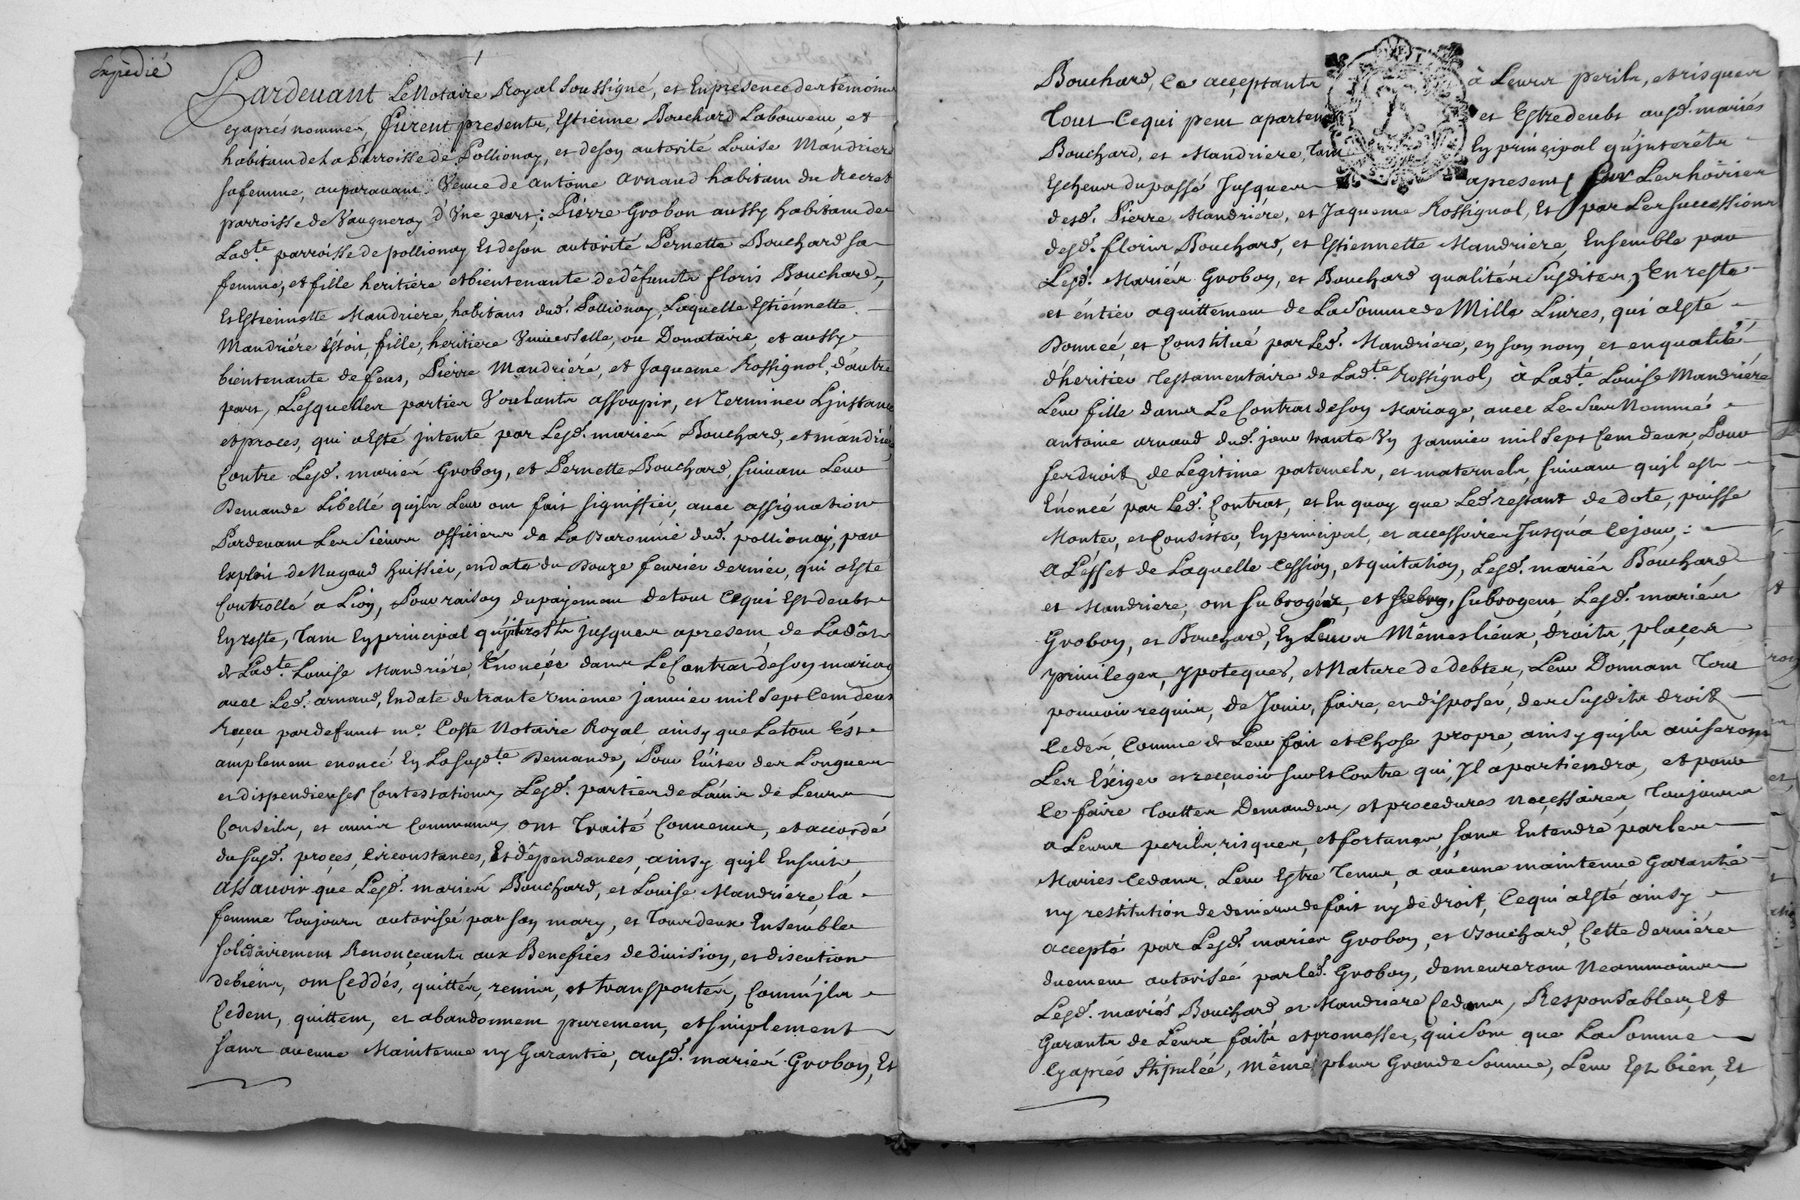 Expédié
Pardevant Le Notaire Royal Soussigné, et En presence des témoins
cyaprés nommés, furent presents, Estienne Bouchard Laboureur, et
habitant de La Parroisse de Pollionay, et de son autorité Louise Mandriere
sa femme, auparavant Veuve de antoine arnaud habitant du
parroisse de Vaugneray d'Vne part; Pierre Grobon aussy habitant de
Lad.te parroisse de pollionay Et de son autorité Pernette Bouchard sa
femme, et fille heritiere et bientenante de defunts floris Bouchard,
Et Estiennette Mandriere, habitans dud. Pollionay, Laquelle Estiennette
Mandriére Estoit fille, heritiere Vniverselle, ou Donataire, et aussy
bientenante de feus, Pierre Mandriére, et Jaqueme Rossignol, d'autre
part, Lesquelles parties Voulants assoupir, et Terminer L'jnstance
et procès, qui a esté jntenté par Lesd. mariés Bouchard, et mandriére
Contre Lesd. mariés Grobon, et Pernette Bouchard, suivant Leur
Demande Libellé qujls Leur ont fait signiffier, avec assignation
Pardevant Les Sieurs officiers de La Baronnie dud. pollionay, par
Exploit de Nugaud huissier, en datte du Douze fevrier dernier, qui a Esté
Controllé a Lion, Pour raison du payement de tout Ce qui Est deubt
En reste, Tant En principal qu'jnterests jusques a present de La dôt
de Lad.te Louise Mandriére, Enoncée dans Le Contrat de son mariage
avec Led. arnaud, En date du trante Vnieme janvier mil sept Cent deux
reçeu par defunt m.e Coste Notaire Royal, ainsy que Le tout Est
amplement enoncé En La susd.te Demande, Pour Eviter des Longues
et dispendieuses Contestations, Lesd. parties de L'avis de Leurs
Conseils, et amis Communs, ont Traité Convenus, et accordé
du susd. procès, Circonstances, Et dépendances, ainsy qujl Ensuit,
assavoir que Lesd. mariés Bouchard, et Louise Mandriere, la
femme Toujours autorisée par son mary, et Tous deux Ensemble
solidairement Renonceants aux Benefices de division, et discution
de biens, ont Ceddés, quittés, remis, et transportés, Comm'jls
Cedent, quittent, et abandonnent purement, et simplement
sans aucune Maintenue ny Garantie, ausd. mariés Grobon, Et
Bouchard, Ce acceptants à Leurs perils, et risques
Tout Ce qui peut apartenir et Estre deubt ausd. mariés
Bouchard, et Mandriere, Tant En principal qu'jnterêts
Escheus du passé Jusques a present, sur Les hoiries
desd. Pierre Mandriére, et Jaqueme Rossignol, Et par Les successions
desd. floris Bouchard, et Estiennette Mandriere, Ensemble par
Lesd. Mariés Grobon, et Bouchard qualités Susdites, En reste
et entier aquittement de La Somme de Mille Livres, qui a Esté
Donnée, et Constitué par Led. Mandriére, en son nom et en qualité
d'heritier Testamentaire de Lad.te Rossignol, à Lad.te Louise Mandriére
Leur fille dans Le Contrat de son Mariage, avec Le Sus Nommé
antoine arnaud dud. jour trante Vn janvier mil sept Cent deux Pour
ses droits de Legitime paternels, et maternels, suivant qujl est
Enoncé par Led. Contrat, et En quoy que Led. restant de dote, puisse
Monter, et Consister, En principal, et accessoires Jusqu'a Ce jour;
a L'effet de Laquelle Cession, et quitation, Lesd. mariés Bouchard
et Mandriere, ont subrogés, et subrogent, Lesd. mariés
Grobon, et Bouchard, En Leurs Mêmes lieux, droits, plaçes
privileges, ypoteques, et Nature de debtes, Leur Donnant Tout
pouvoir requis, de Jouir, faire, en disposer, des Susdits droits
Cedés, Comme de Leur fait et Chose propre, ainsy qujls aviseront
Les Exiger et reçevoir sur Et Contre qui, Jl apartiendra, et pour
Ce faire Toutes Demandes, et procedures néçessaires, Toujours
a Leurs perils, risques, et fortunes, sans Entendre par les
Mariés Cedants, Leur Estre Tenus, a aucune maintenue Garantie
ny restitution de deniers de fait ny de droit, Ce qui a Esté ainsy
accepté par Lesd. mariés Grobon, et Bouchard, Cette derniére
duement autorisée par led. Grobon, demeureront Neantmoins
Lesd. mariés Bouchard, et Mandriere Cedants, Responsables, Et
Garants de Leurs faits et promesses, qui sont que La Somme
Cy aprés Stipulée, même plus Grande Somme, Leur Est bien, Et